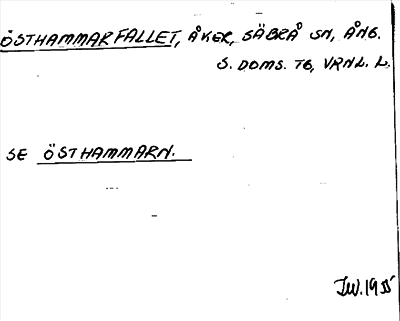 ÖSTHAMMARFALLET, ÅKER, SÄBRÅ SN, ÅNG.
S. DOMS. TG, VRNL. L.
SE ÖSTHAMMARN.
IW. 1955